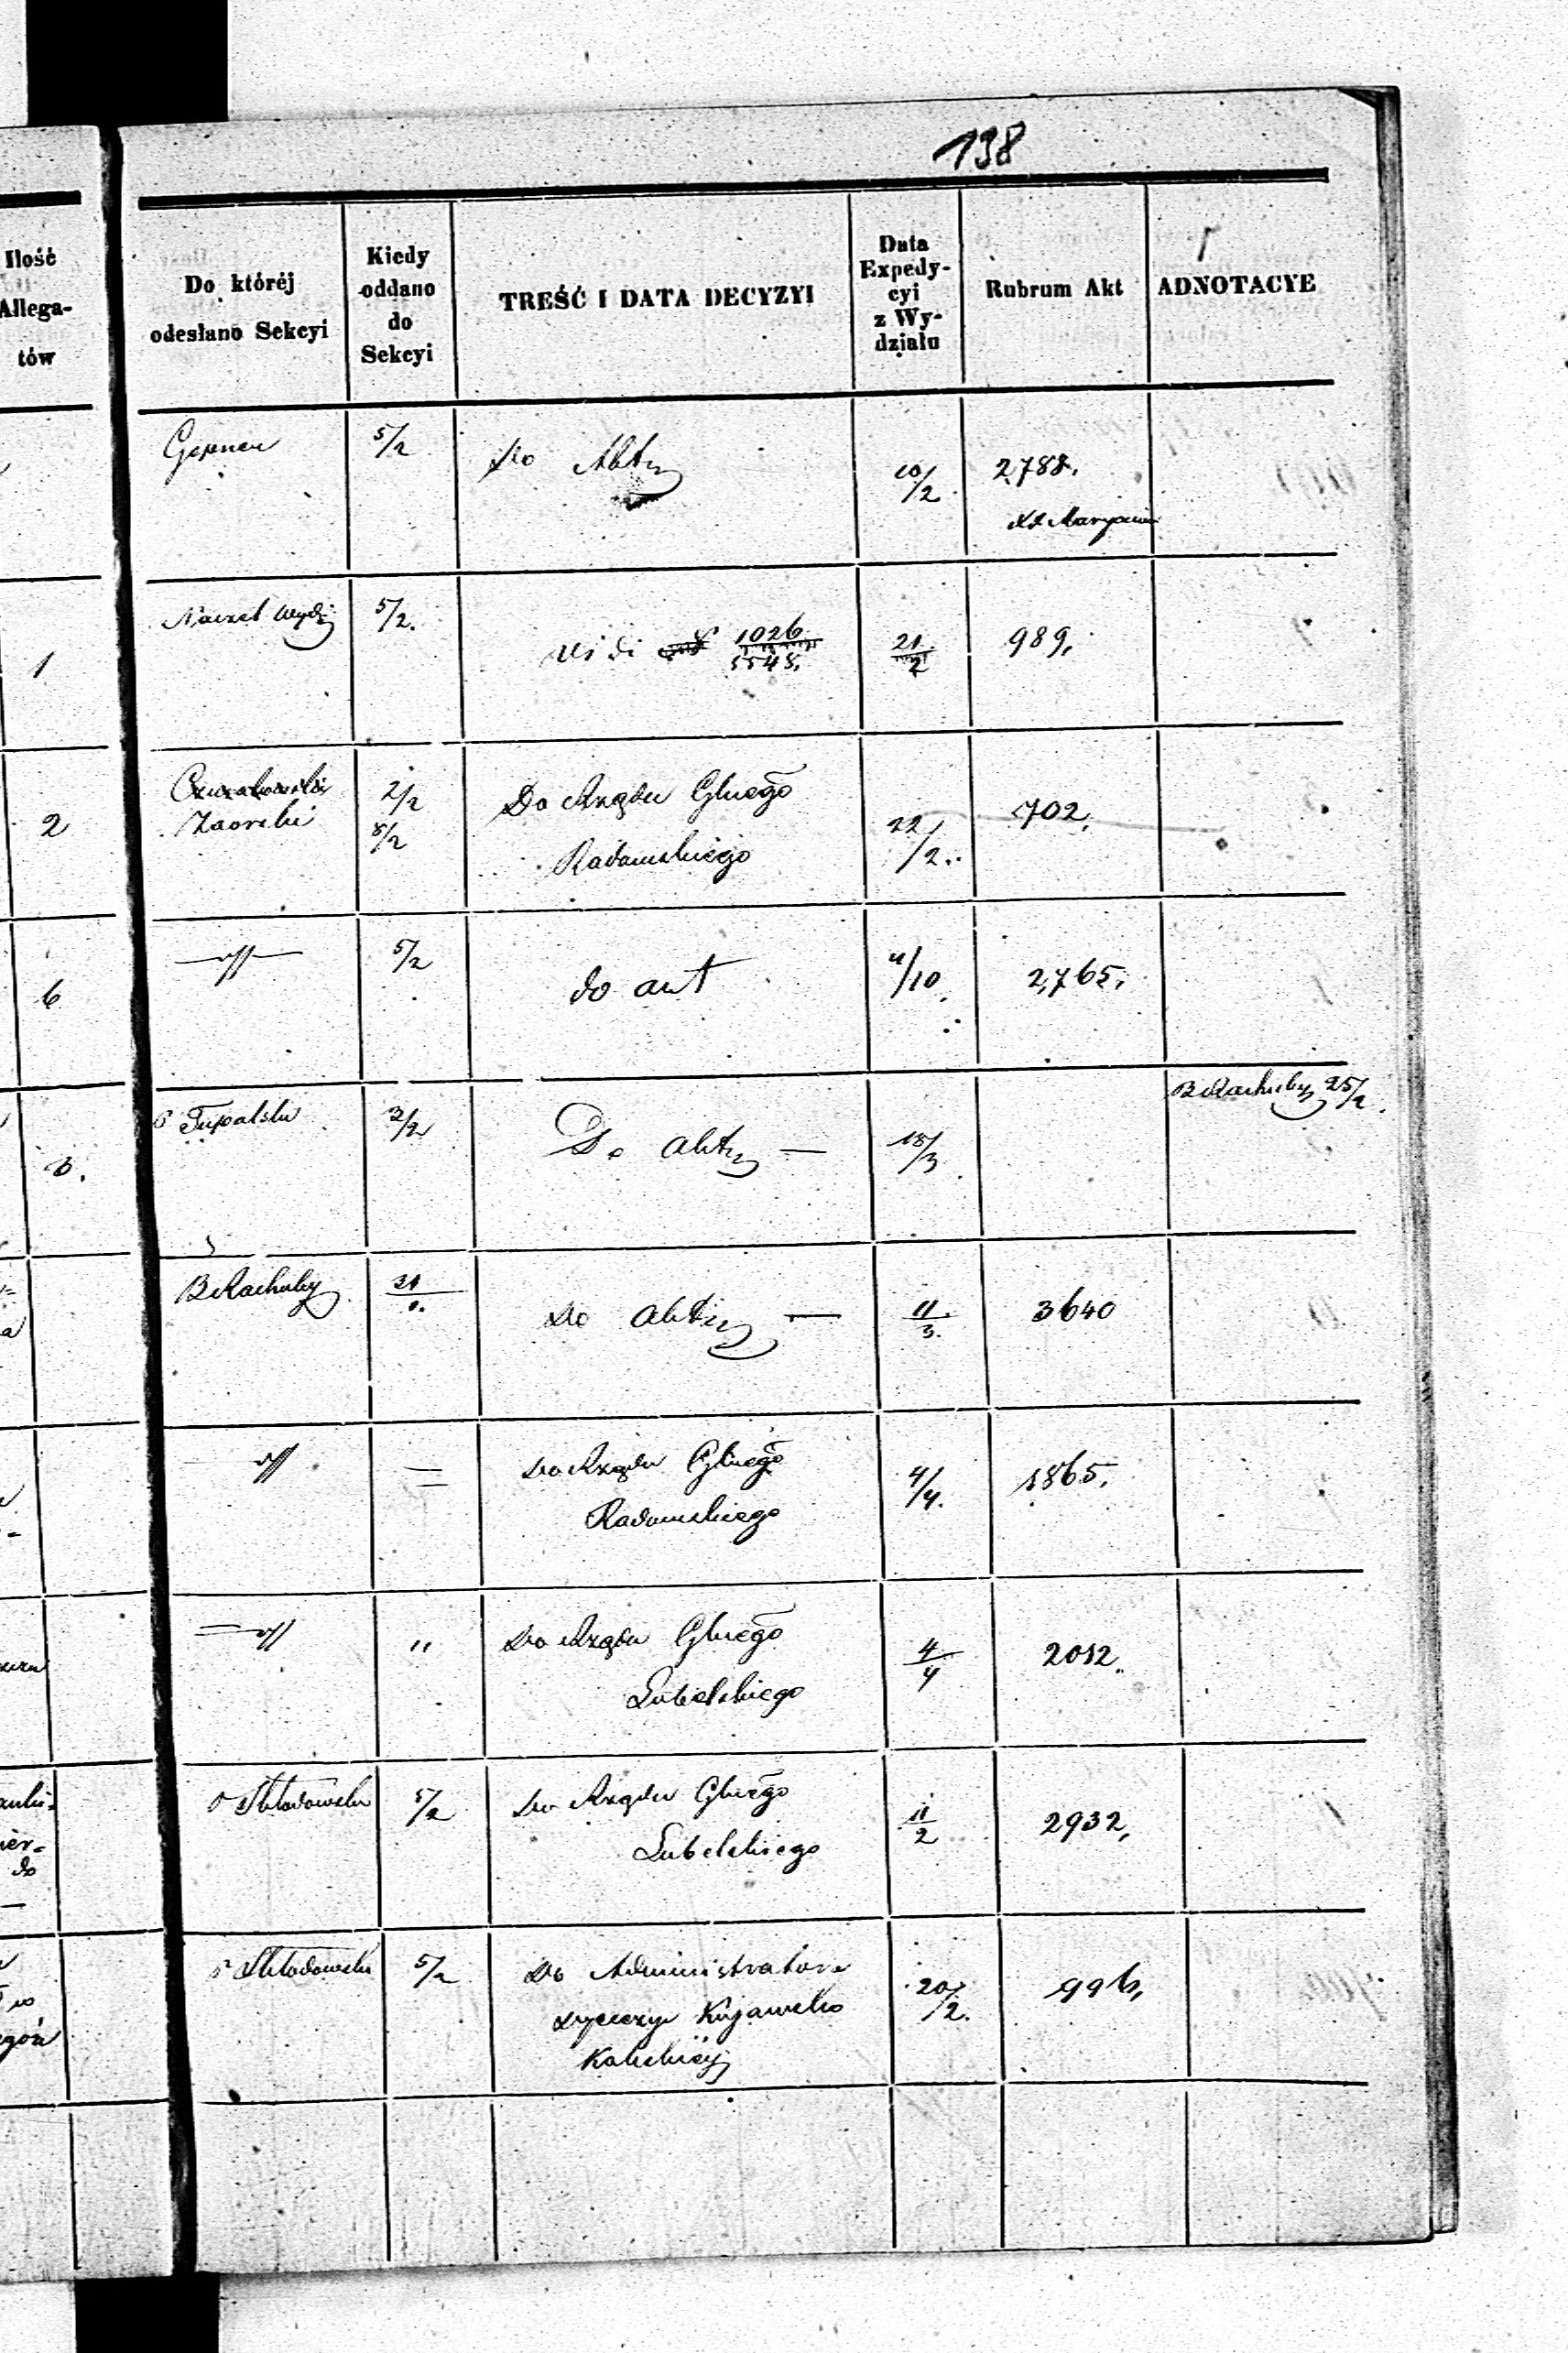 138
Ilość
Allega-
tów
Do któréj
odesłano Sekcyi
Kiedy
oddano
do
Sekcyi
TREŚĆ I DATA DECYZYI
Data
Expedy-
cyi
z Wy-
działu
Rubrum Akt
ADNOTACYE
5/2
Do Akt
10/2
2788.
1
Naczel Wydz
5/2.
vidi 1026
5548.
21/2
989.
2
2/2
5/2
Do Rządu Głnego
Radomskiego
22/2.
702.
6
5/2
do akt
4/10
2765.
3/2
Do akt —
18/3
B Rachuby 25/2
B Rachuby
31/1.
Do akt —
11/3.
3640
Do Rządu Głnego
Radomskiego
4/4.
1865.
"
Do Rządu Głnego
Lubelskiego
4/4
2012.
do
5/2
Do Rządu Głnego
Lubelskiego
11/2
2932,
5/2
Do Administratora
Dyecezyi Kujawsko
Kaliskiéj
20/2.
996,